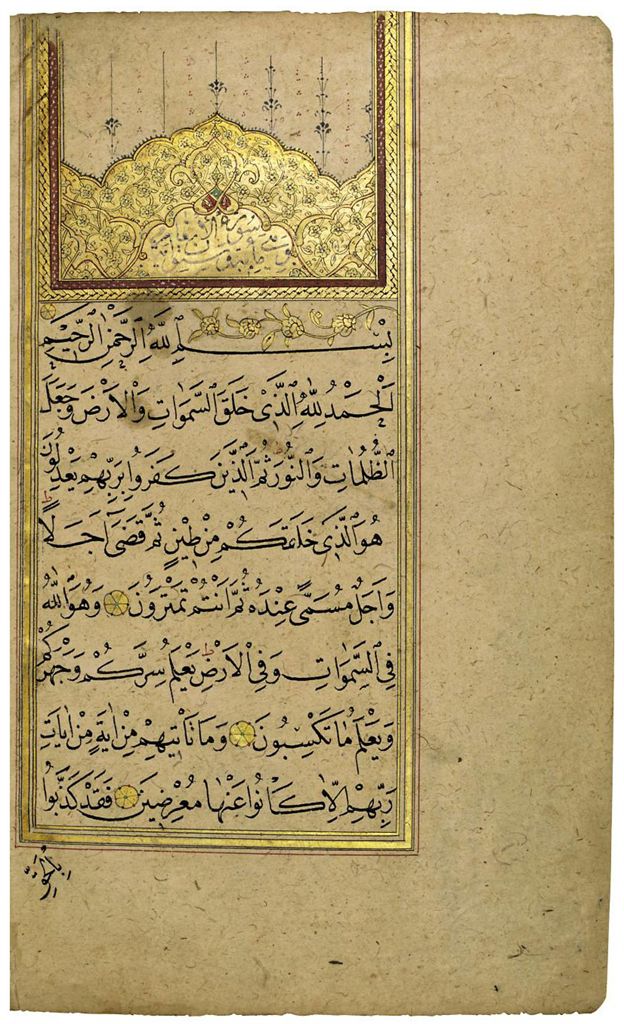 سورة الانعام
بِسْمِ اللّٰهِ الرَّحْمٰنِ الرَّحِيمِ
اَلْحَمْدُ لِلّٰهِ الَّذٖى خَلَقَ السَّمٰوَاتِ وَالْاَرْضَ وَجَعَلَ
الظُّلُمَاتِ وَالنُّورَ ثُمَّ الَّذٖينَ كَفَرُوا بِرَبِّهِمْ يَعْدِلُونَ
هُوَ الَّذٖى خَلَقَكُمْ مِنْ طٖينٍ ثُمَّ قَضٰٓى اَجَلًا
وَاَجَلٌ مُسَمًّى عِنْدَهُ ثُمَّ اَنْتُمْ تَمْتَرُونَ وَهُوَ اللّٰهُ
فِى السَّمٰوَاتِ وَفِى الْاَرْضِ يَعْلَمُ سِرَّكُمْ وَجَهْرَكُمْ
وَيَعْلَمُ مَا تَكْسِبُونَ وَمَا تَاْتٖيهِمْ مِنْ اٰيَةٍ مِنْ اٰيَاتِ
رَبِّهِمْ اِلَّا كَانُوا عَنْهَا مُعْرِضٖينَ فَقَدْ كَذَّبُوا
بِالْحَقِّ